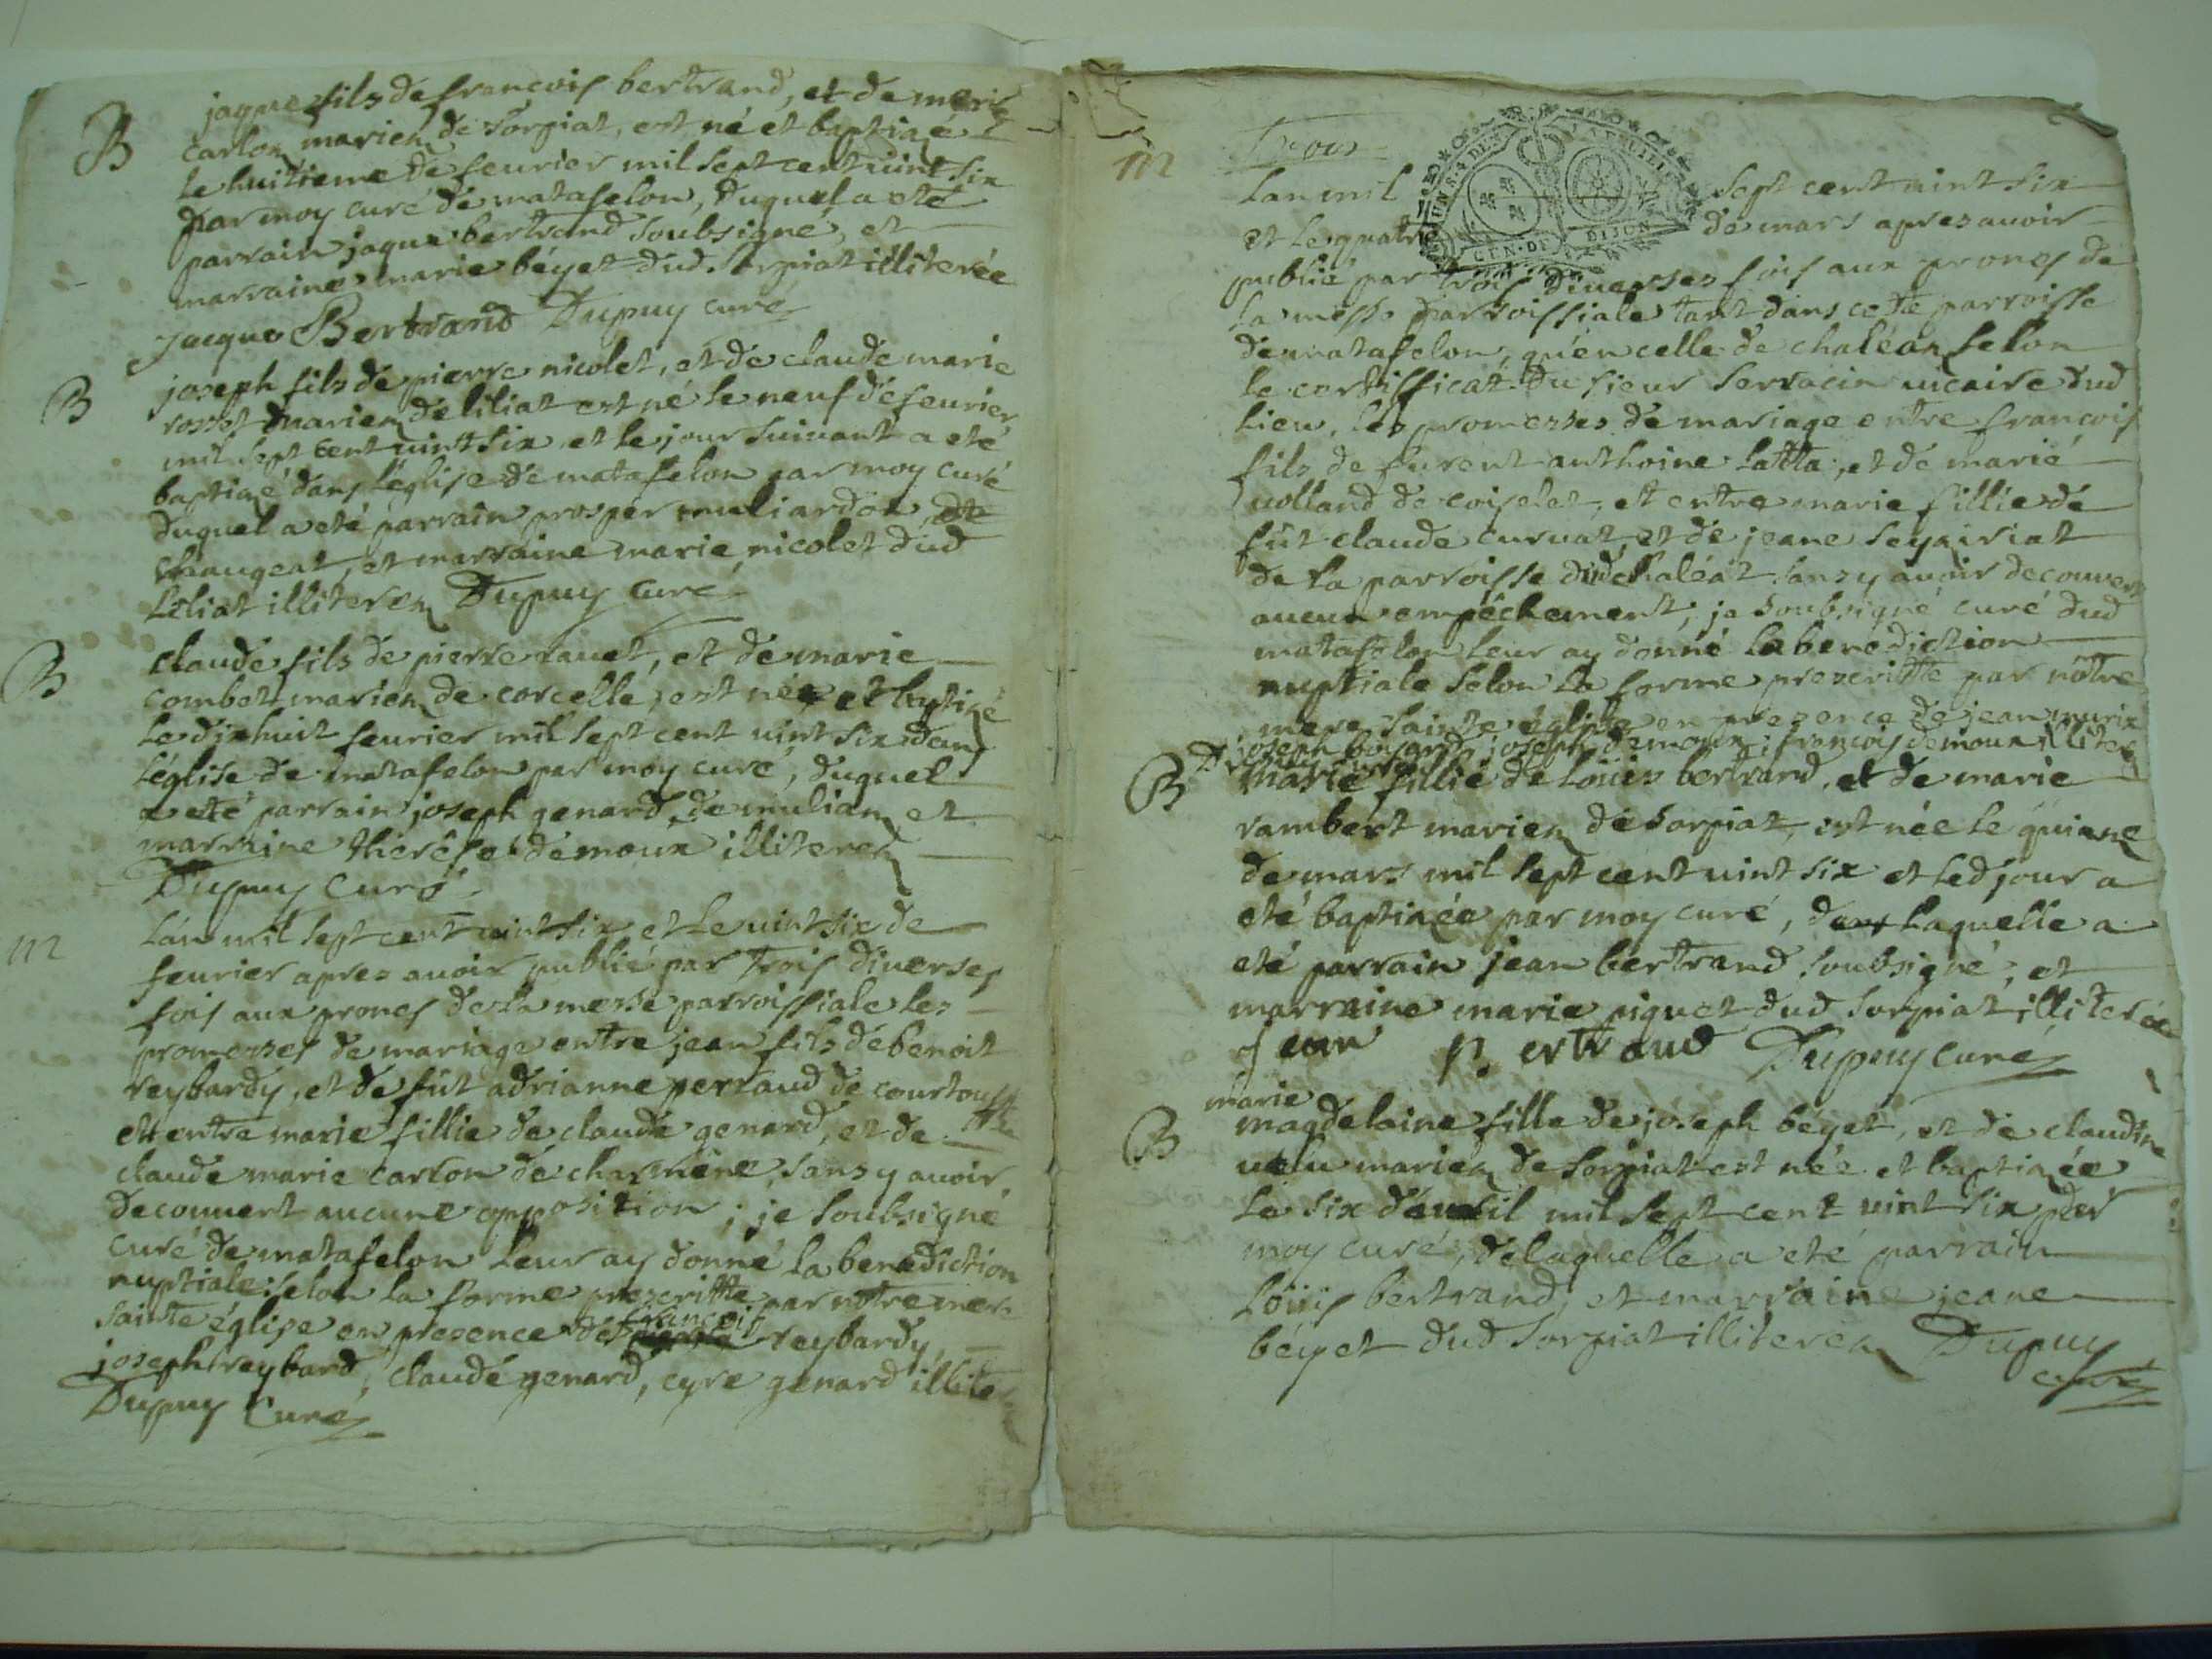 B jaque fils de françois bertrand, et de marie
carlon mariez de sorpiat, est né et baptizé
le huitieme de feurier mil sept cent uint six
par moy curé de matafelon, duquel a eté
parrain jaque bertrand soubsigné, et
marraine marie béyet dud sorpiat illiterée
Jacque Bertrand Dupuy curé
B joseph fils de pierre nicolet, et de claude marie
rosset mariez de liliat est né le neuf de feurier
mil sept cent uint six et le jour suiuant a eté
baptizé dans l'église de matafelon par moy curé
duquel a eté parrain prosper muliardon de
chaugeat, et marraine marie nicolet dud
liliat illiterez Dupuy curé
B claude fils de pierre rauet, et de marie
combet mariez de corcelle, est né et baptizé
le dixhuit feurier mil sept cent uint six dans
l'église de matafelon par moy curé, duquel
a eté parrain joseph genard de mulian et
marraine thérése démoux illiterez
Dupuy Curé
M L'an mil sept cent uint six et le uint six de
feurier apres auoir publié par trois diuerses
fois aux prones de la messe parroissiale les
promesses de mariage entre jean fils de benoit
reybardy, et de fût adrianne perraud de courtou
et entre marie fillie de claude genard, et de
claude marie carlon de charmine, sans y auoir
decouuert aucune opposition; je soubsigné
curé de matafelon leur ay donné la benediction
nuptiale selon la forme prescritte par notre mere
sainte église en presence de françois reybardy,
joseph reybard, claude genard, cyre genard illite
Dupuy Curé
Trois
M L'an mil sept cent uint six
et le quatrie de mars apres auoir
GEN·DE DIJON
publié par trois diuerses fois aux prones de
la messe parroissiale tant dans cette parroisse
de matafelon, qu'en celle de chaléaz selon
le certifficat du sieur serracin uicaire dud
lieu, les promesses de mariage entre françois
fils de furent anthoine latta, et de marie
uolland de coiselet, et entre marie fillie de
fût claude curuat, et de jeane seyziriat
de la parroisse dud chaléat sans y auoir decouuert
aucun empêchement, je soubsigné curé dud
matafelon leur ay donné la benediction
nuptiale selon la forme prescritte par nôtre
mere sainte église en presence de jean
joseph boisard, joseph demoux, françois demoux illiterez
B marie fillie de Loüis bertrand, et de marie
rambert mariez de sorpiat, est née le quinze
de mars mil sept cent uint six et led jour a
eté baptizée par moy curé, de laquelle a
eté parrain jean bertrand soubsigné, et
marraine marie piquet dud sorpiat illiterée
jean Bertraud Dupuy curé
marie
B magdelaine fille de joseph béyet, et de claudine
uelu mariez de sorpiat est née et baptizée
le six d'auril mil sept cent uint six par
moy curé, de laquelle a eté parrain
Loüis bertrand, et marraine jeane
béyet dud sorpiat illiterez Dupuy
curé